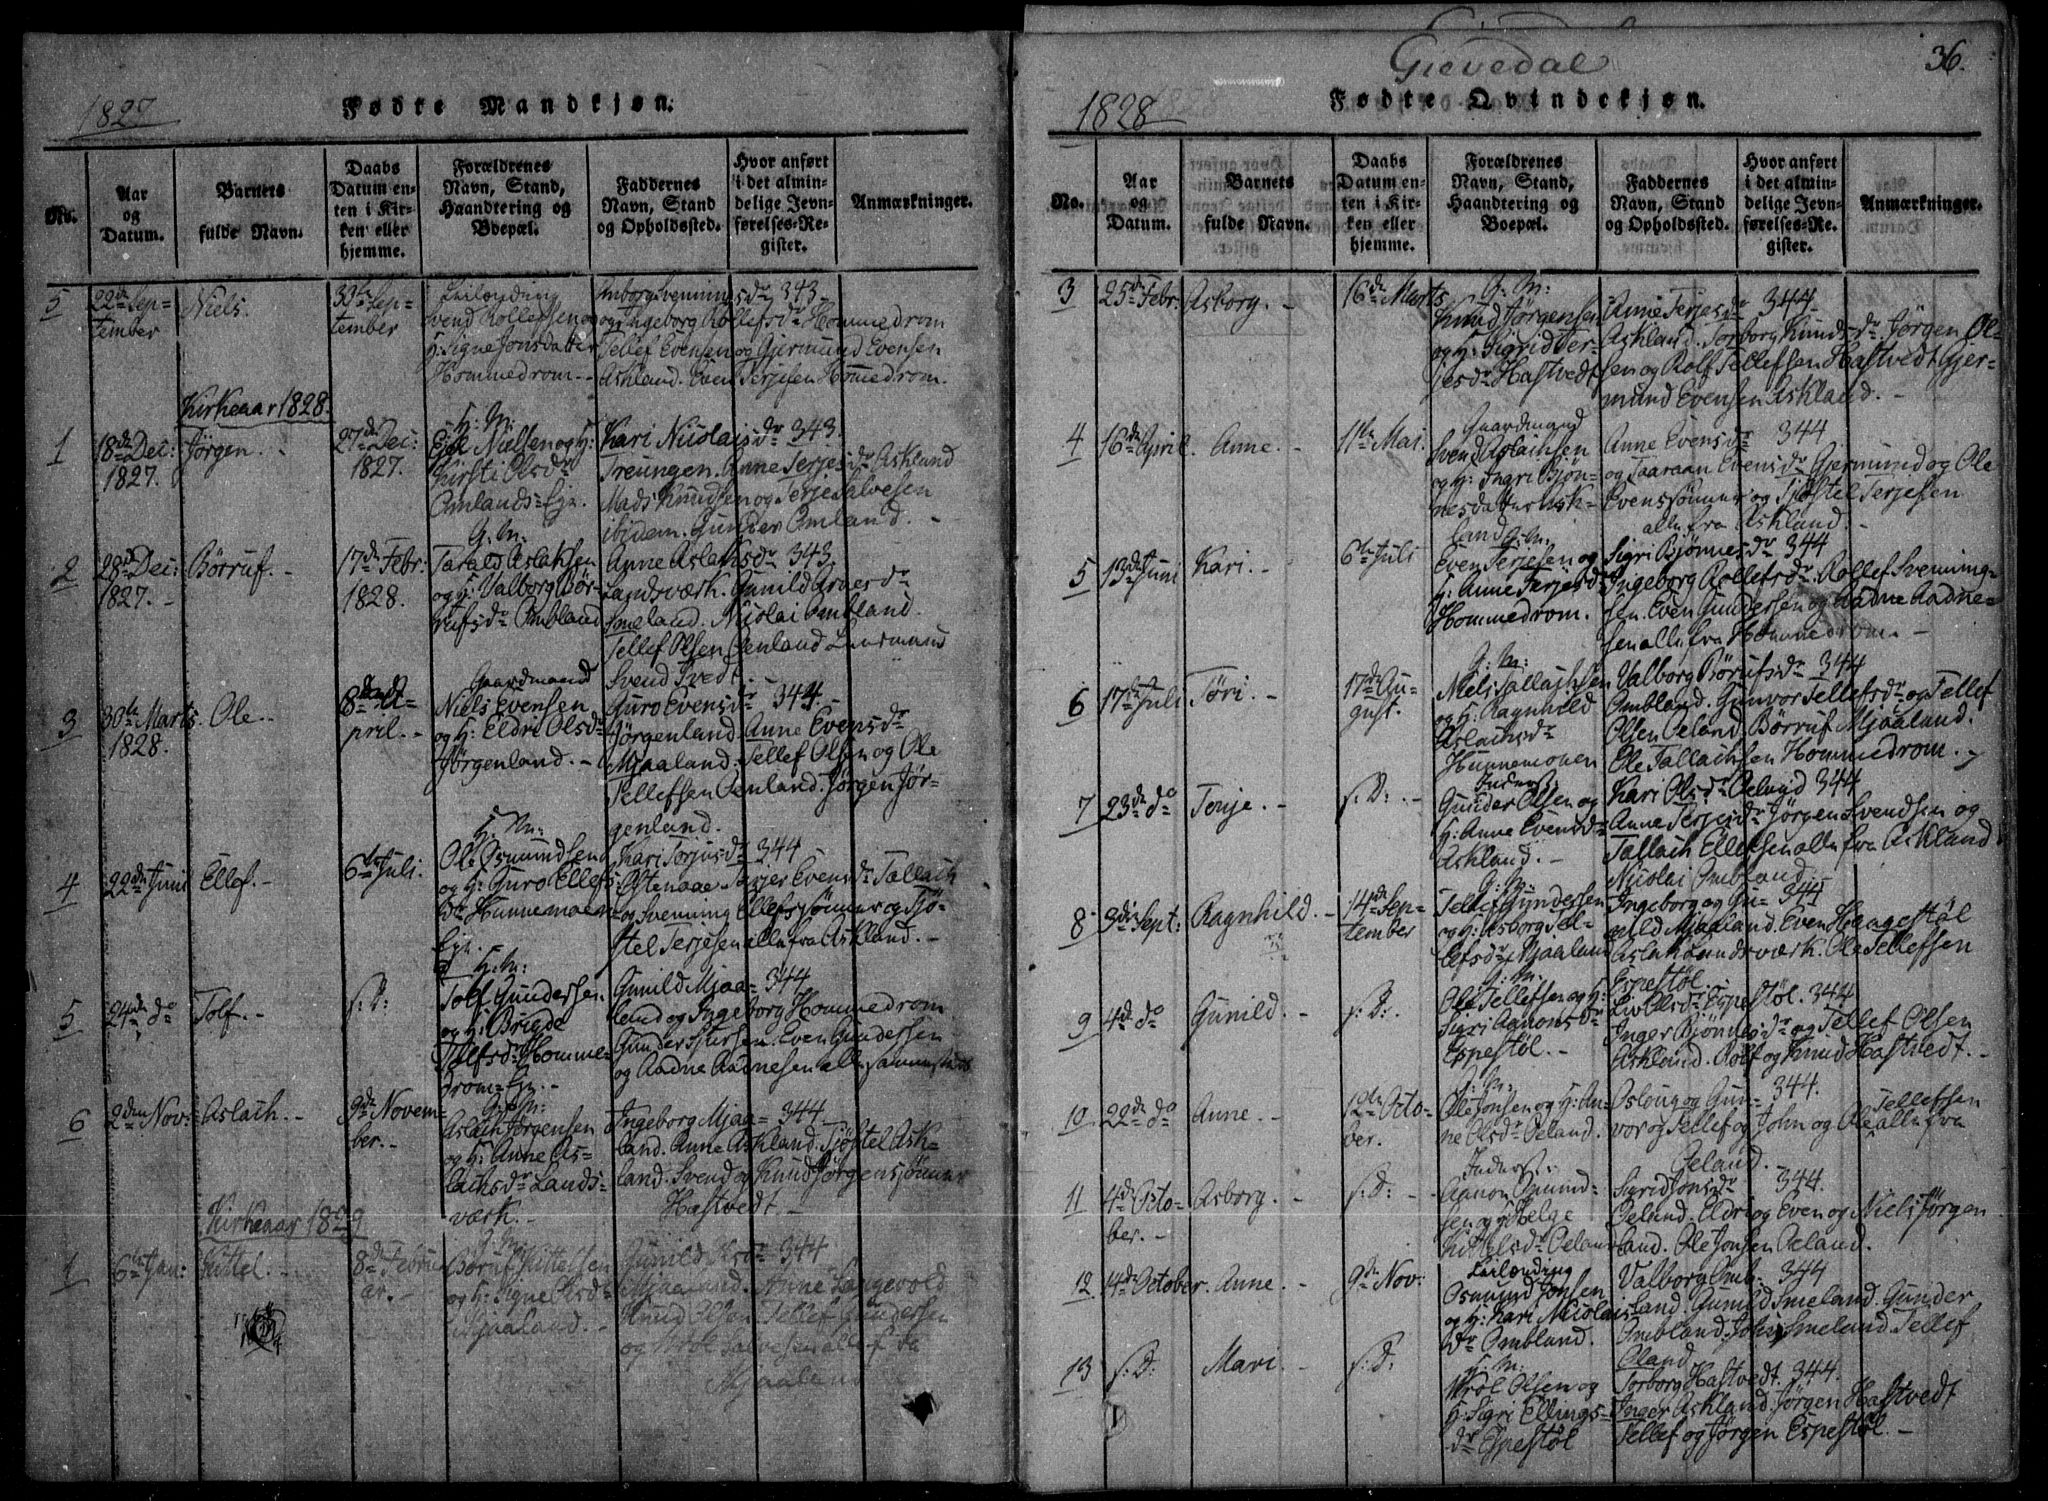 1827
Fødte Mandkjøn.
No.
Aar
og
Datum.
Barnets
fulde Navn.
Daabs
Datum en-
ten i Kir-
ken eller
hjemme.
Forældrenes
Navn, Stand,
Haandtering og
Boepæl.
Faddernes
Navn, Stand
og Opholdssted.
Hvor anført
i det almin-
delige Jevn-
førelses-Re-
gister.
Anmærkninger.
5
22de Sep-
tember
Niels.
30te Sep-
tember
Leilending
Svend Rollefsen og
H: Signe Jonsdatter
Hommedrom.
Anborg Svenningsdr 343
og Ingeborg Rollefsdr Hommedrom
Tellef Evensen og Gjermund Evensen
Askland. Even Terjesen Hommedrom.
Kirkeaar 1828.
1
18de Dec:
1827.
Jørgen.
27de Dec:
1827.
H: M:
Nielsen og H:
Kirsti Olsdr
Omlands-Eje.
Kari Nicolaisdr 343.
Treungen. Anne Terjesdr Askland
Mads Knudsen og Terje Salvesen
ibidem. Gunder Omland.
2
28de Dec:
1827.
Børruf.
17de Febr:
1828.
G: M:
Tarald Aslaksen
og H: Valborg Bør-
rufsdr Ombland
Anne Aslaksdr 343
Landsværk. Gunild
Smeland. Nicolai Ombland.
Tellef Olsen Oenland
Svend Tvedt.
3
30te Marts
1828.
Ole.
8de A-
pril.
Gaardmand
Niels Evensen
og H: Eldri Olsdr
Jørgenland.
Guro Evensdr 344
Jørgenland. Anne Evensdr
Mjaaland. Tellef Olsen og Ole
Tellefsen Oenland. Jørgen Jør-
genland.
4
22de Juni
Ellef.
6te Juli.
H: M:
Ole Osmundsen
og H: Guro Ellefs-
dr Hunnemoen-
Eje.
Kari Torjusdr 344
Evensdr Tallach
og Svenning Ellefssønner og Tjø-
stel Terjesen alle fra Askland.
5
24de do
Tolf.
s: D:
H: M:
Tolf Gundersen
og H: Brigde
Tolfsdr Homme-
drom-Eje.
Gunild Mjaa- 344
land og Ingeborg Hommedrom
Gunder Sjursen. Even Gundersen
og Aadne Aadnesen alle sammesteds
6
2den Nov:
Aslach.
9de Novem-
ber.
G: M:
Aslach Jørgensen
og H: Anne As-
lachsdr Lands-
værk.
Ingeborg Mjaa- 344
land. Anne Askland. Tjøstel Ask-
land. Svend og Knud Jørgenssønner
Hastvedt.
Kirkeaar 1829
1
6te Jan:
Kittel.
8de Febru
ar.
G: M:
Børuf Kittelsen
og H: Signe Olsdr
Mjaaland.
Gunild Olsdr 344
Mjaaland. Anne Langevold
Knud Olsen. Tellef Gundersen
og Salvesen alle fra
Mjaaland
Gievedal
36.
1828
Fødte Qvindekjøn.
No.
Aar
og
Datum.
Barnets
fulde Navn.
Daabs
Datum en-
ten i Kir-
ken eller
hjemme.
Forældrenes
Navn, Stand,
Haandtering og
Boepæl.
Faddernes
Navn, Stand
og Opholdssted.
Hvor anført
i det almin-
delige Jevn-
førelses-Re-
gister.
Anmærkninger.
3
25de Febr:
Asborg.
16de Marts
G: M:
Knud Jørgensen
og H: Sigrid Ter-
jesdr Hastvedt
Anne Terjesdr 344
Askland. Torborg Knudsdr Jørgen Ol-
sen og Rolf Tellefsen Hastvedt. Gjer-
mund Evensen Askland.
4
16de April.
Anne.
11te Mai.
Gaardmand
Svend Aslachsen
og H: Ingri Bjøn-
nesdatter Ask-
land
Anne Evensdr 344
og Taaraan Evensdr Gjermund og Ole
Evenssønner og Tjøstel Terjesen
alle fra Askland.
5
13de Juni
Kari.
6te Juli
G: M:
Even Terjesen og
H: Anne Terjesdr
Hommedrom.
Sigri Bjønnesdr 344
Ingeborg Rollefsdr. Rollef Svenning-
sen. Even Gundersen og Aadne Aadne-
sen alle fra Hommedrom.
6
17de Juli
Tøri.
17de Au-
gust.
G: M:
Niels Tallachsen
og H: Ragnhild
Aslachsdr
Hunnemoen
Valborg Børufsdr 344
Ombland. Gunvor Tellefsdr og Tellef
Olsen Oeland. Børruf Mjaaland.
Ole Tallachsen Hommedrom.
7
23de do
Tonje.
s: D:
Inderst:
Gunder Olsen og
H: Anne Evensdr
Askland.
Kari Olsdr 344
Anne Terjesdr Jørgen Svendsen og
Tallach Ellefsen alle fra Askland
Nicolai Ombland.
8
3die Sept:
Ragnhild.
14de Sep-
tember
G: M:
Tellef Gundersen
og H: Asborg Tel-
lefsdr Mjaaland
Ingeborg og Gu- 344
nild Mjaaland. Even Haugestøl
Aslak Landsværk. Ole Tellefsen
Espestøl
9
4de do
Gunild.
s: D:
G: M:
Ole Tellefsen og H:
Sigri Aanonsdr
Espestøl.
Liv Olsdr Espestøl. 344
Inger Bjønnesdr og Tellef Olsen
Askland. Rolf og Knud Hastvedt.
10
22de do
Anne.
12te Octo-
ber.
G: M:
Ole Jonsen og H: An-
ne Olsdr Oeland.
Osloug og Gun- 344.
vor og Tellef og John og Ole Tellefsen
alle fra
Oeland.
11
4de Octo-
ber.
Asborg.
s: D:
Inderst:
Aanon Omund-
sen og Helge
Kittelsdr Oeland
Sigrid Jonsdr 344.
Oeland. Eldri og Even og Niels Jørgen
land. Ole Jonsen Oeland.
12
4de October.
Anne.
9de Nov:
Leilending
Osmund Jonsen
og H: Kari Nicolais
dr Ombland.
Valborg Omb- 344
land. Gunild Smeland. Gunder
Ombland. John Smeland. Tellef
Oland
13
s: D:
Mari.
s: D:
H: M:
Wrol Olsen og
H: Sigri Ellings-
dr Espestøl
Torborg Hastvedt. 344.
Inger Askland. Jørgen Hastvedt
Tellef og Jørgen Espestøl.